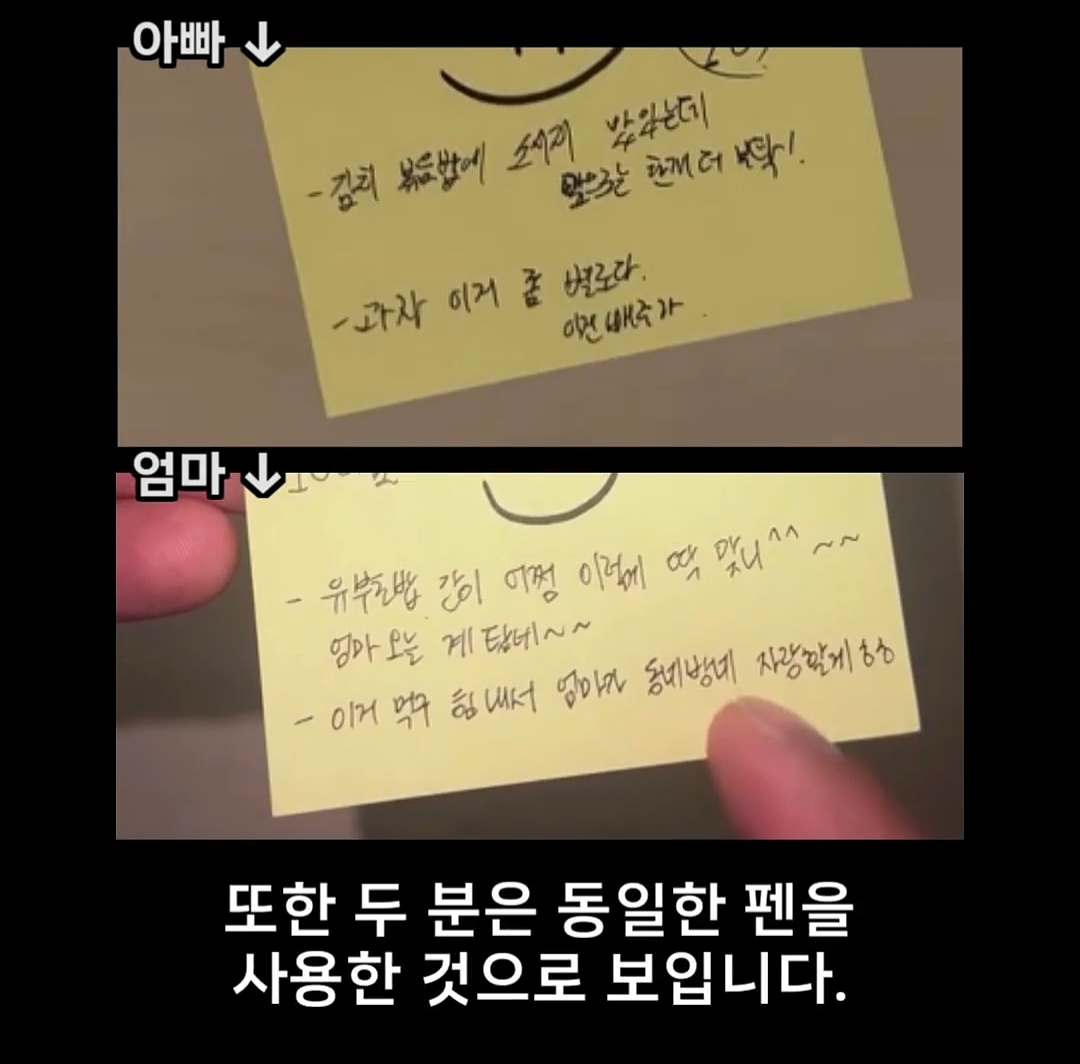 아빠 ↓
- 김치 볶음밥에 소세지 맛있는데
앞으로는 한개 더 부탁!.
- 과자 이거 좀 별로다.
이건 빼주라.
엄마 ↓
- 유부초밥 간이 어쩜 이렇게 딱 맞니^^ ~~
엄마 오늘 계 탔네~~
- 이거 먹구 힘내서 엄마가 동네방네 자랑할게ㅎㅎ
또한 두 분은 동일한 펜을
사용한 것으로 보입니다.